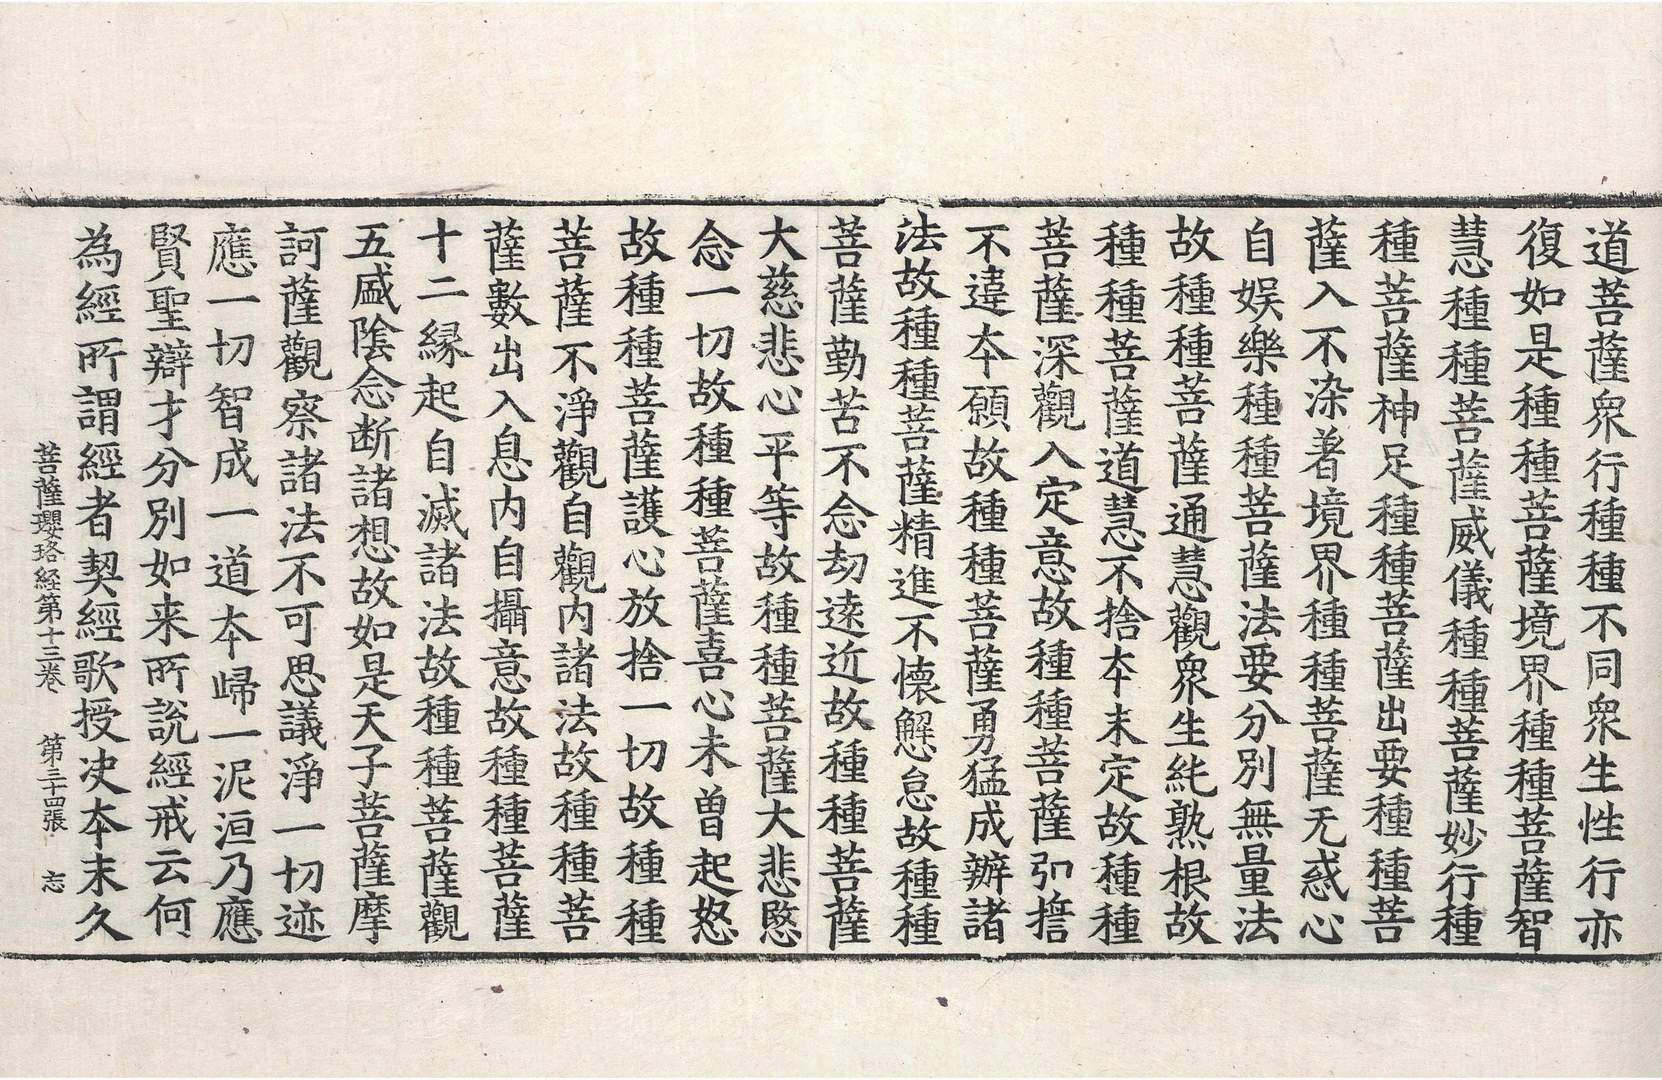 道菩薩眾行種種不同眾生性行亦
復如是種種菩薩境界種種菩薩智
慧種種菩薩威儀種種菩薩妙行種
種菩薩神足種種菩薩出要種種菩
薩入不染著境界種種菩薩无惑心
自娛樂種種菩薩法要分別無量法
故種種菩薩通慧觀眾生純熟根故
種種菩薩道慧不捨本末定故種種
菩薩深觀入定意故種種菩薩弘誓
不違本願故種種菩薩勇猛成辦諸
法故種種菩薩精進不懷懈怠故種種
菩薩勤苦不念劫遠近故種種菩薩
大慈悲心平等故種種菩薩大悲愍
念一切故種種菩薩喜心未曾起怒
故種種菩薩護心放捨一切故種種
菩薩不淨觀自觀内諸法故種種菩
薩數出入息内自攝意故種種菩薩
十二緣起自滅諸法故種種菩薩觀
五盛陰念断諸想故如是天子菩薩摩
訶薩觀察諸法不可思議淨一切迹
應一切智成一道本歸一泥洹乃應
賢聖辯才分別如来所說經戒云何
為經所謂經者契經歌授決本末久
菩薩瓔珞経第十三卷 第三十四張 志